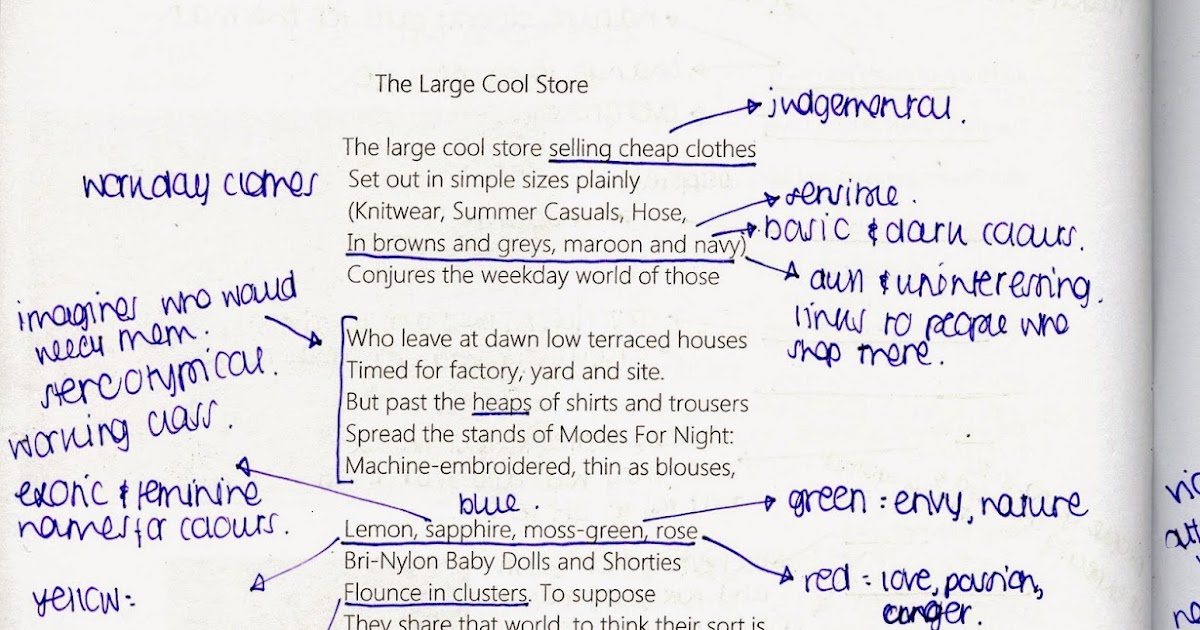 The Large Cool Store
judgemental.
The large cool store selling cheap clothes
workday clothes
Set out in simple sizes plainly
sensible.
(Knitwear, Summer Casuals, Hose,
basic & dark colours.
In browns and greys, maroon and navy)
dull & uninteresting.
Conjures the weekday world of those
links to people who
shop there.
imagines who would
need them.
stereotypical
working class.
Who leave at dawn low terraced houses
Timed for factory, yard and site.
But past the heaps of shirts and trousers
Spread the stands of Modes For Night:
Machine-embroidered, thin as blouses,
exotic & feminine
names for colours.
blue.
green: envy, nature
Lemon, sapphire, moss-green, rose
Bri-Nylon Baby Dolls and Shorties
red = love, passion,
anger.
yellow:
Flounce in clusters. To suppose
They share that world, to think their sort is